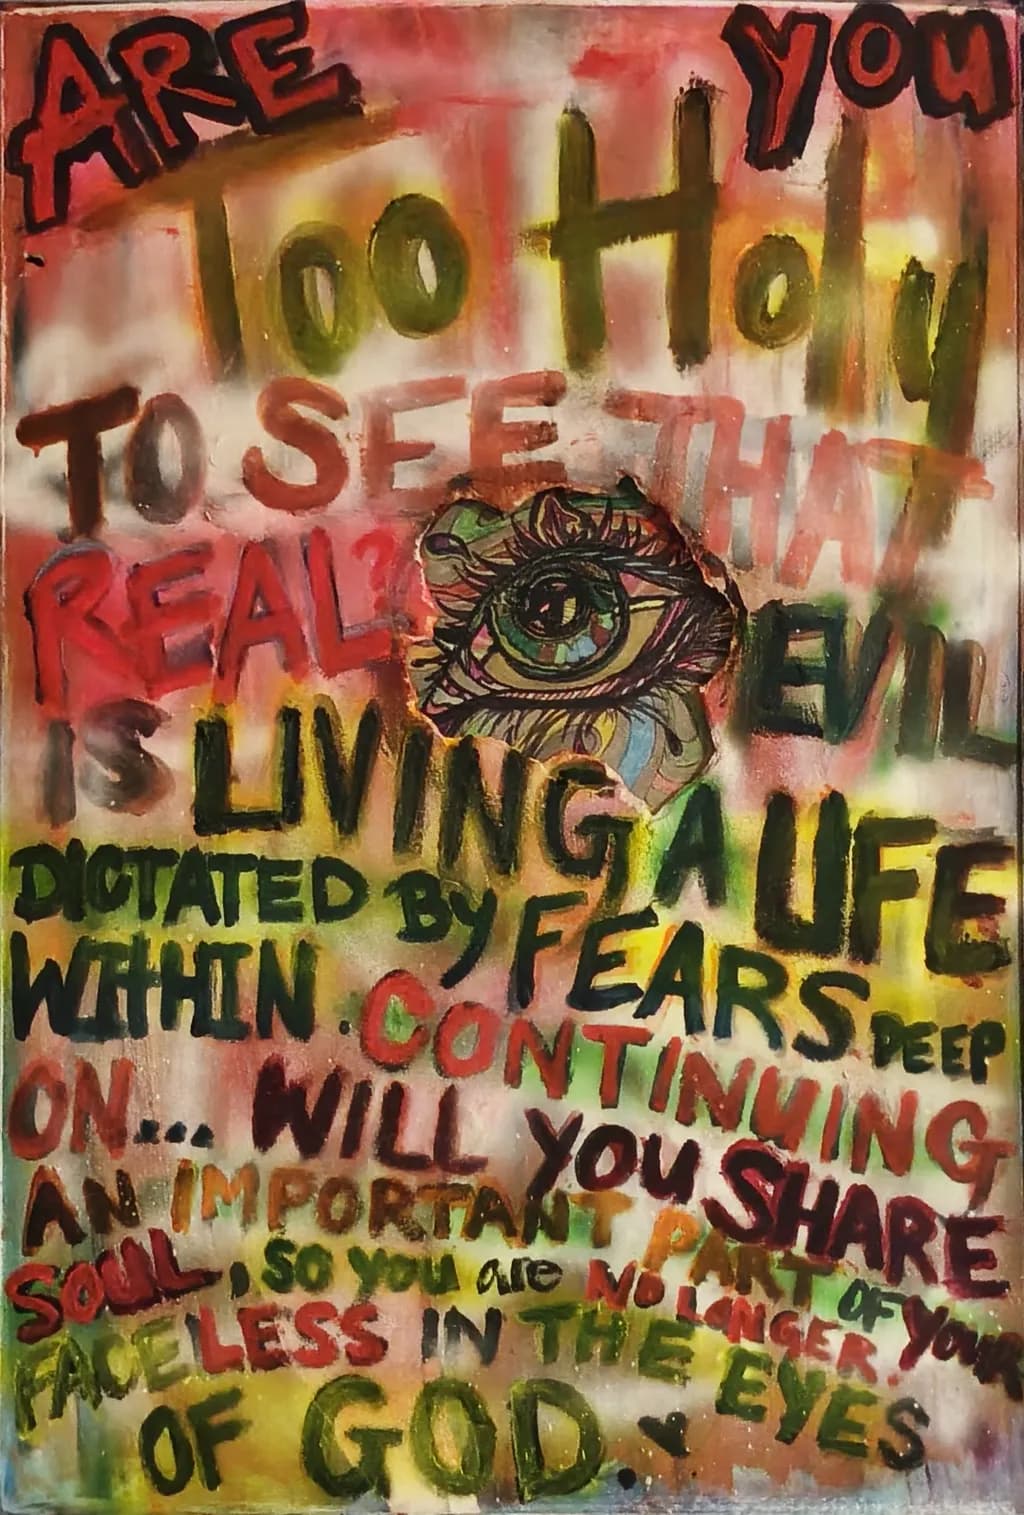 ARE YOU
Too Holy
TO SEE THAT
REAL? EVIL
IS LIVING A LIFE
DICTATED By FEARS DEEP
WITHIN. CONTINUING
ON... WILL YOU SHARE
AN IMPORTANT PART OF YOUR
SOUL, SO YOU are NO LONGER
FACELESS IN THE EYES
OF GOD.